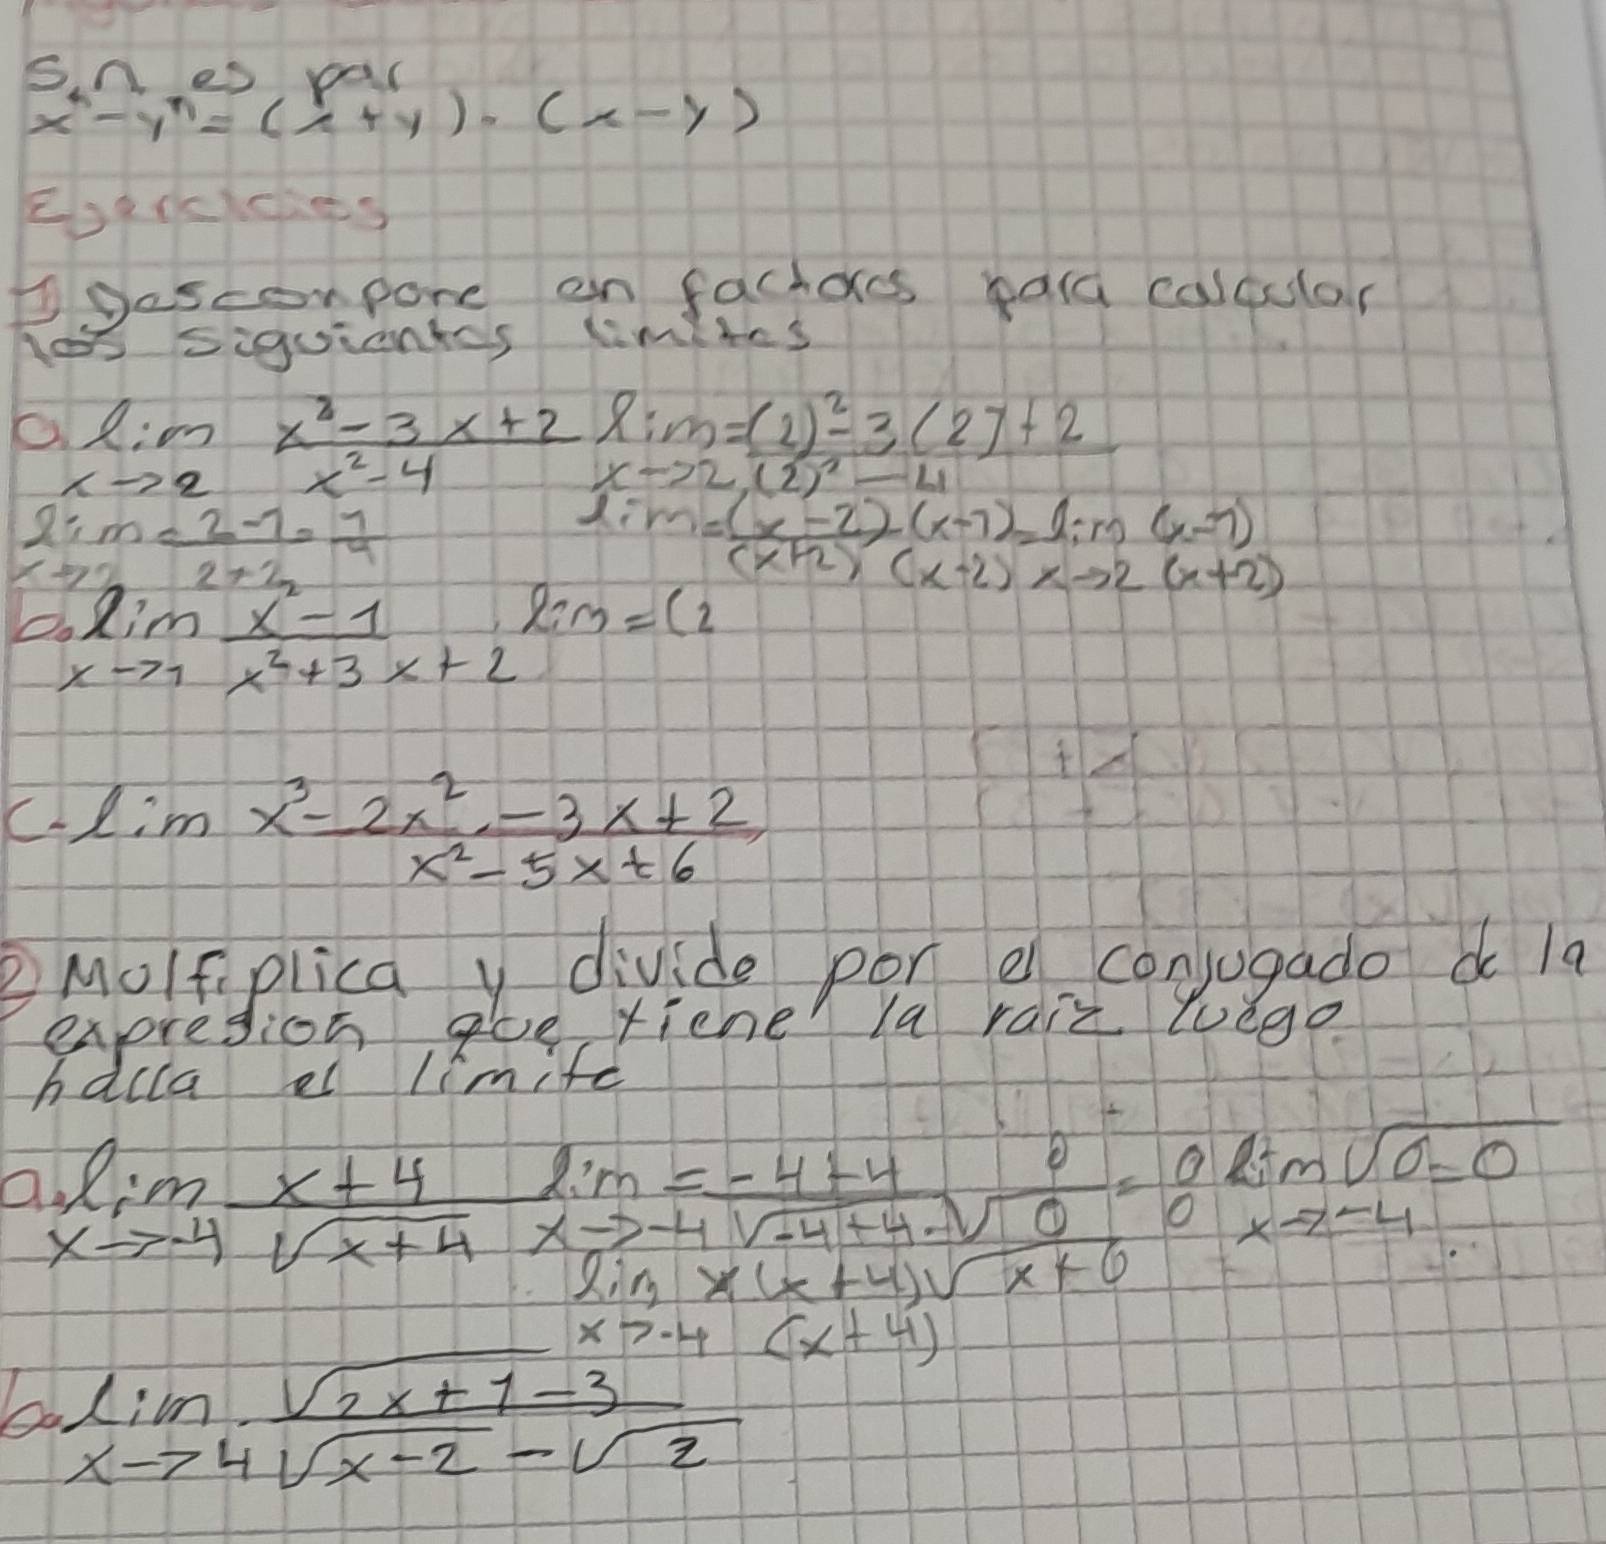 Si n es par
xⁿ - yⁿ = (x + y) . (x - y)
Ejercicios
1 Descompone en factores para calcular
los siguientes limites
a. lim x² - 3x + 2 / x² - 4 lim = (2)² - 3(2) + 2 / (2)² - 4
x → 2 x → 2
lim = 2 - 1 / 2 + 2 = 1 / 4 lim = (x - 2) (x - 1) / (x + 2) (x - 2) = lim (x - 1) / (x + 2)
x → 2 x → 2
b. lim x² - 1 / x² + 3x + 2 lim = (2
x → 1
c. lim x³ - 2x² - 3x + 2 / x² - 5x + 6
2 Multiplica y divide por el conjugado de la
expresion que tiene la raiz luego
halla el limite
a. lim x + 4 / √x + 4 lim = -4 + 4 / √-4 + 4 . √ 0 / 0 = 0 / 0 lim √0 = 0
x → -4 x → -4 x → -4
lim (x + 4) √x + 6 / (x + 4)
x → -4
b. lim √2x + 1 - 3 / √x - 2 - √2
x → 4